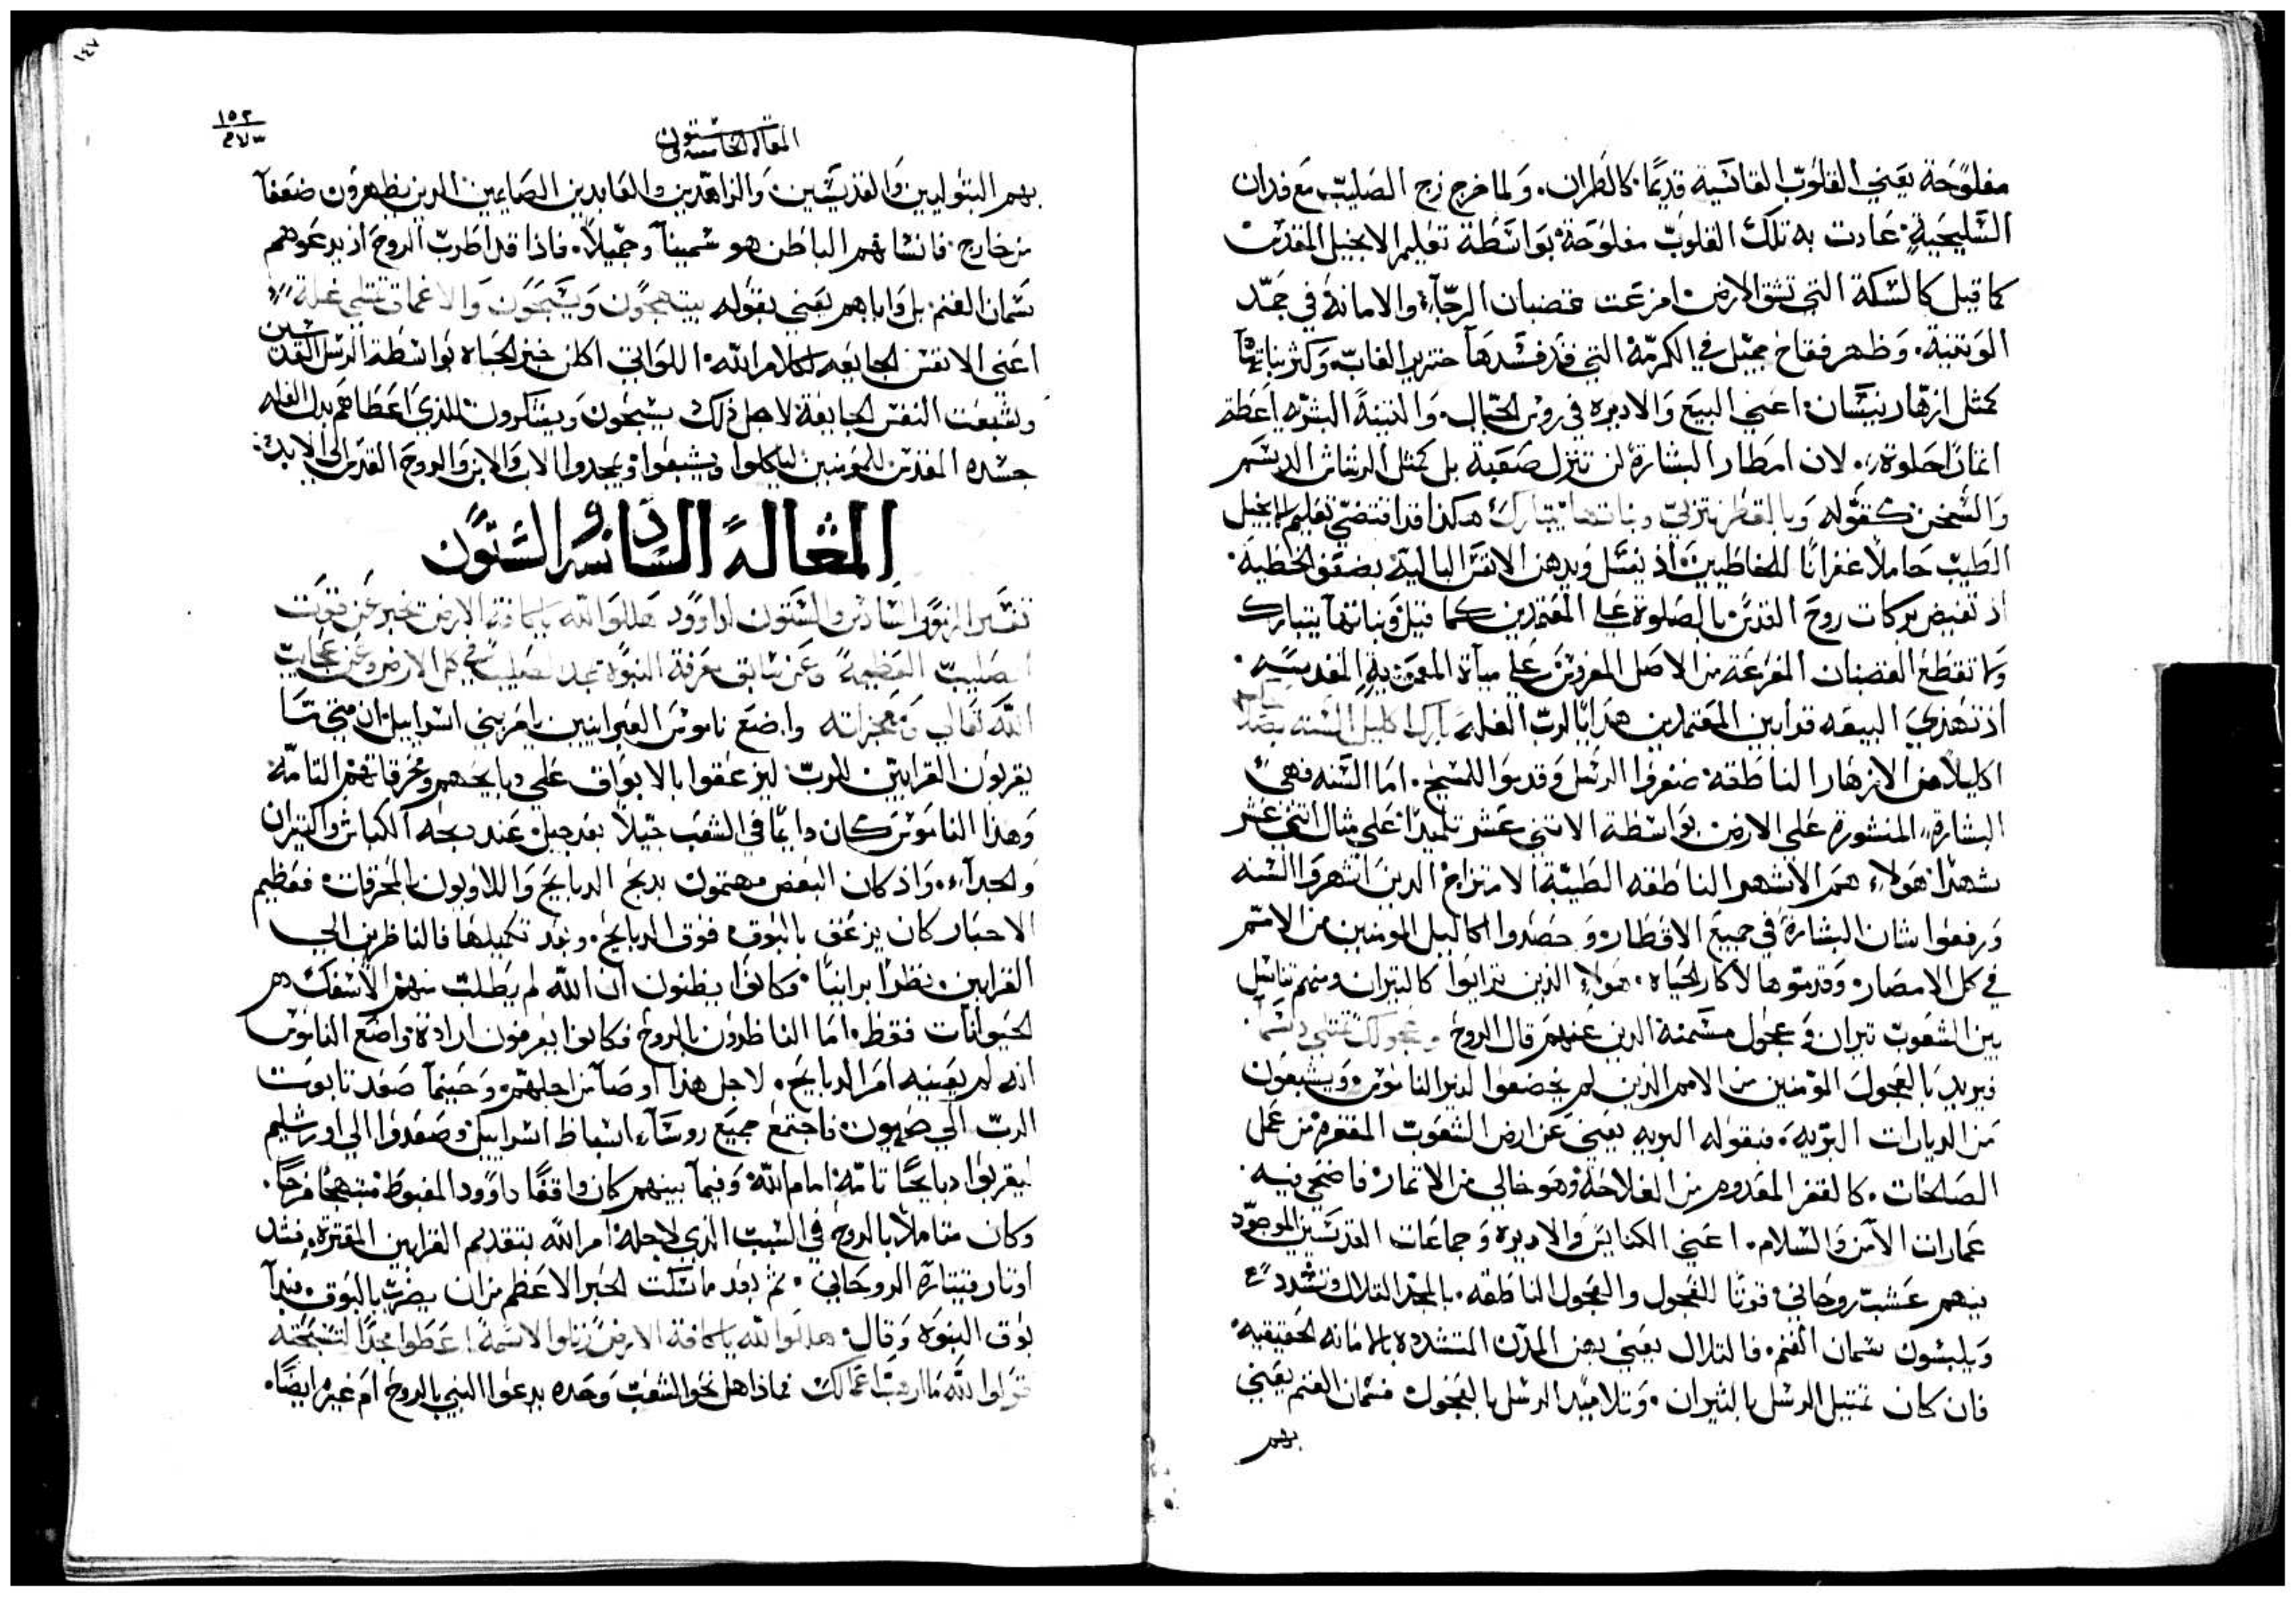 مفلوحة يعني القلوب القاسية قديمًا كالظران. ولما خرج زج الصليب مع فدان
السليحية. عادت به تلك القلوب مفلوحة بواسطة تعليم الانجيل المقدس
كما قيل كالسكة التي تشق الارض امزعت غضبان الرجآء والامانة في جمد
الوثنية. وظهر فقاح ممثل في الكرمة التي قد فسدها خنزير الغاب. وكثر نباتها
كمثل ازهار نيسان. اعني البيع والاديره في روس الجبال. والتينة البشريه اعطت
اثمارًا حلوة. لان امطار البشارة لن تنزل صعبة بل كمثل الرشاش الدسم
والسخن كقوله وبالقطر تتربي ونباتها يتبارك هكذا قد اقتضي تعليم الانجيل
الطيب حاملًا غفرانًا للخاطيين. اذ يغسل ويدهن الانفس البالية بضعف الخطية.
اذ تفيض بركات روح القدس بالصلوة علي المعتمدين كما قيل ونباتها يتبارك
ولما تقطع الغضبان المفرعة من الاصل المغروس علي مياة المعمودية المقدسه.
اذ تهدي البيعه قرابين المعتمدين هدايا لرب الغله بارك اكليل السنه بصلاحك
اكليلًا من الازهار الناطقه ضفروا الرسل وقدموا للمسيح. اما السنه فهي
البشارة المنشورة علي الارض بواسطة الاثني عشر تلميدًا علي مثال اثني عشر
شهرًا. هولاء هم الاشهر الناطقه الطيبة الامتزاج الدين اشهروا السنه
ورفعوا شان البشارة في جميع الاقطار. وحصدوا اكاليل المومنين من الامم
في كل الامصار. وقدموها لاكار الحياه. هولاء الذين ترايوا كالتيران ومنهم تناسل
بين الشعوب تيران وعجول مسمنة الدين عنهم قال الروح وعجولك تمتلي دسمًا.
ويريد بالعجول المؤمنين من الامم الذين لم يخضعوا لنير الناموس. ويشبعون
من الديارات البريه. فبقوله البريه يعني عن ارض الشعوب المقفره من عمل
الصالحات. كالقفر المعدوم من الفلاحة وهو خالي من الاتمار. فاضحي فيه
عمارات الأمن والسلام. اعني الكنايس والاديره وجماعات القديسين الموجود
بينهم عشب روحاني قوتًا للفحول والعجول الناطقه. بالمجد التلال تتشدد
ويلبسون سمان الغنم. فالتلال يعني بهن المدن المتشدده بالامانه الحقيقيه.
فان كان تمتيل الرسل بالتيران. وتلاميد الرسل بالعجول فسمان الغنم يعني
بهم
١٤٧
١٥٢
المقاله الخامسه والستون
بهم البتوليين والقديسين والزاهدين والعابدين الصايمين الدين يظهرون ضعفآ
من خارج. فانسانهم الباطن هو سمينآ وجميلًا. فاذا قد اطرب الروح اذ يدعوهم
سمان الغنم. بل واياهم يعني بقوله يبتهجون ويسبحون والاعماق تمتلي غلة
اعني الانفس الجايعه لكلام الله. اللواتي اكلن خبز الحياه بواسطة الرسل القديسين
وشبعت النفس الجايعة لاجل ذلك يسبحون ويشكرون للذي اعطاهم بدل الغله
جسده المقدس للمومنين لياكلوا ويشبعوا. ويمجدوا الاب والابن والروح القدس الي الابد:
المقالة السادسة والستون
تفسير المزمور السادس والستون لداوود هللوا لله ياكافة الارض تخبر عن قوت
الصليب العظيمة وعن سابق معرفة النبوة بمجد الصليب في كل الارض وعن عجايب
الله تعالي ومعجزاته واضع ناموس العبرانيين يامر بني اسراييل ان متي تا
يقربون القرابين للرب ليزعقوا بالابواق علي دبايحهم ومحرقاتهم التامة
وهذا الناموس كان دايمًا في الشعب جيلًا بعد جيل عند دبحه الكباش والتيران
والجدآء. واذ كان البعض مهتمون بدبح الدبايح واللاويون بالمحرقات. فعظيم
الاحبار كان يزعق بالبوق فوق الدبايح. وبعد تكميلها فالناظرين الي
القرابين نظرًا برانيًا. وكانوا يظنون ان الله لم يطلب منهم الا سفك دم
الحيوانات فقط. اما الناظرون بالروح فكانوا يعرفون ارادة واضع الناموس
انه لم يعينيه امر الدبايح. لاجل هذا اوصآ من اجلهم. وحينمآ صعد تابوت
الرب الي صهيون. فاجتمع جميع روسآء اسباط اسراييل وصعدوا الي اورشليم
ليقربوا دبايحًا تامة امام الله. وفيمآ بينهم كان واقفًا داوود المغبوط مبتهجًا فرحًا.
وكان متاملًا بالروح في السبب الذي لاجله امر الله بتقديم القرابين المقترة. فشد
اوتار قيتارة الروحاني. ثم بعد ما سكت الحبر الاعظم من ان يضرب بالبوق. فبدآ
بوق النبوه وقال: هللوا لله ياكافة الارض رتلوا لاسمه اعطوا مجدًا لتسبحته
قولوا لله ما ارهب اعمالك فماذا هل نحو الشعب وحده يدعوا النبي بالروح ام غيره ايضًا.